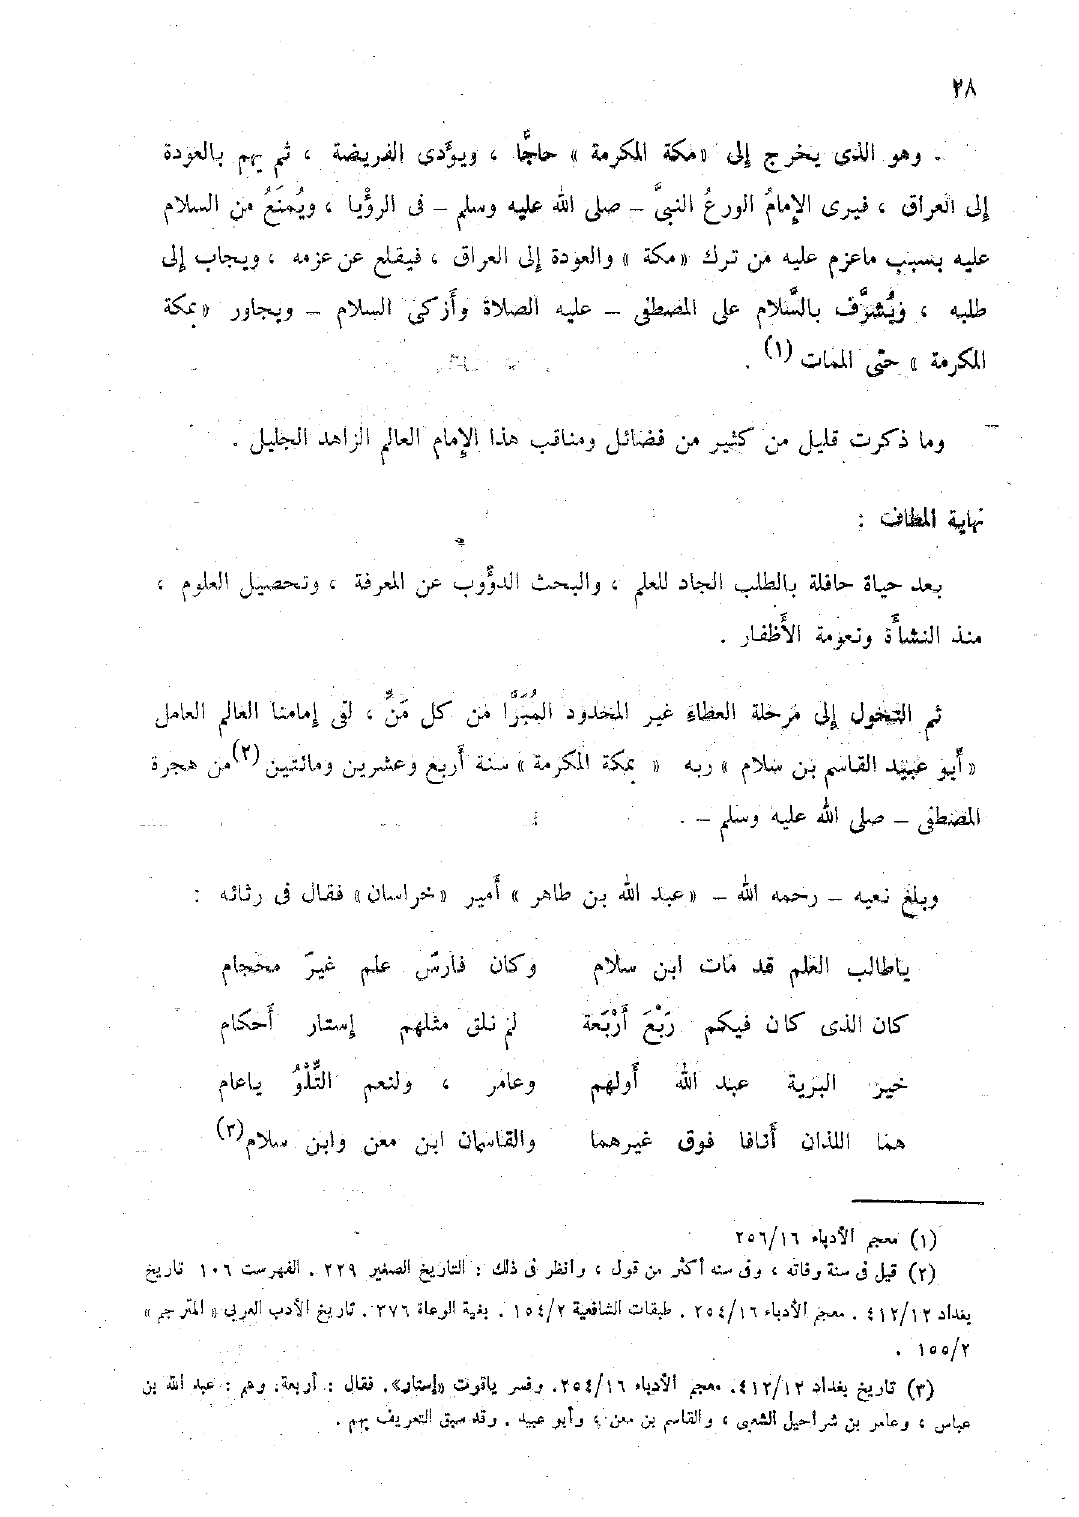 ٢٨
. وهو الذى يخرج إلى «مكة المكرمة » حاجًّا ، ويؤدى الفريضة ، ثم يهم بالعودة
إلى العراق ، فيرى الإمامُ الورعُ النبىَّ – صلى الله عليه وسلم – فى الرؤْيا ، ويُمنَعُ من السلام
عليه بسبب ماعزم عليه من ترك «مكة » والعودة إلى العراق ، فيقلع عن عزمه ، ويجاب إلى
طلبه ، ويُشرَّف بالسَّلام على المصطفى – عليه الصلاة وأَزكى السلام – ويجاور «بمكة
المكرمة » حتى الممات (١) .
وما ذكرت قليل من كثير من فضائل ومناقب هذا الإمام العالم الزاهد الجليل .
نهاية المطاف :
بعد حياة حافلة بالطلب الجاد للعلم ، والبحث الدؤُوب عن المعرفة ، وتحصيل العلوم ،
منذ النشأَة ونعومة الأَظفار .
ثم التحول إلى مرحلة العطاء غير المحدود المُبَرَّإ من كل مَنٍّ ، لقى إمامنا العالم العامل
«أَبو عبيد القاسم بن سلام » ربه « بمكة المكرمة » سنة أَربع وعشرين ومائتين (٢) من هجرة
المصطفى – صلى الله عليه وسلم – .
وبلغ نعيه – رحمه الله – «عبد الله بن طاهر » أَمير «خراسان» فقال فى رثائه :
ياطالب العلم قد مات ابن سلام وكان فارسَ علم غيرَ محجام
كان الذى كان فيكم رَبْعَ أَرْبَعة لم نلق مثلهم إستار أَحكام
خير البرية عبد الله أَولهم وعامر ، ولنعم التِّلْوُ ياعام
هما اللذان أَنافا فوق غيرهما والقاسمان ابن معن وابن سلام(٣)
(١) معجم الأدباء ٢٥٦/١٦
(٢) قيل فى سنة وفاته ، وفى سنه أكثر من قول ، وانظر فى ذلك : التاريخ الصغير ٢٢٩ . الفهرست ١٠٦ تاريخ
بغداد ٤١٢/١٢ . معجم الأدباء ٢٥٤/١٦ . طبقات الشافعية ١٥٤/٢ . بغية الوعاة ٣٧٦ . تاريخ الأدب العربى « المترجم »
١٥٥/٢ .
(٣) تاريخ بغداد ٤١٢/١٢. معجم الأدباء ٢٥٤/١٦. وفسر ياقوت «إستار». فقال : أربعة. وهم : عبد الله بن
عباس ، وعامر بن شراحيل الشعبى ، والقاسم بن معن ، وأبو عبيد . وقد سبق التعريف بهم .